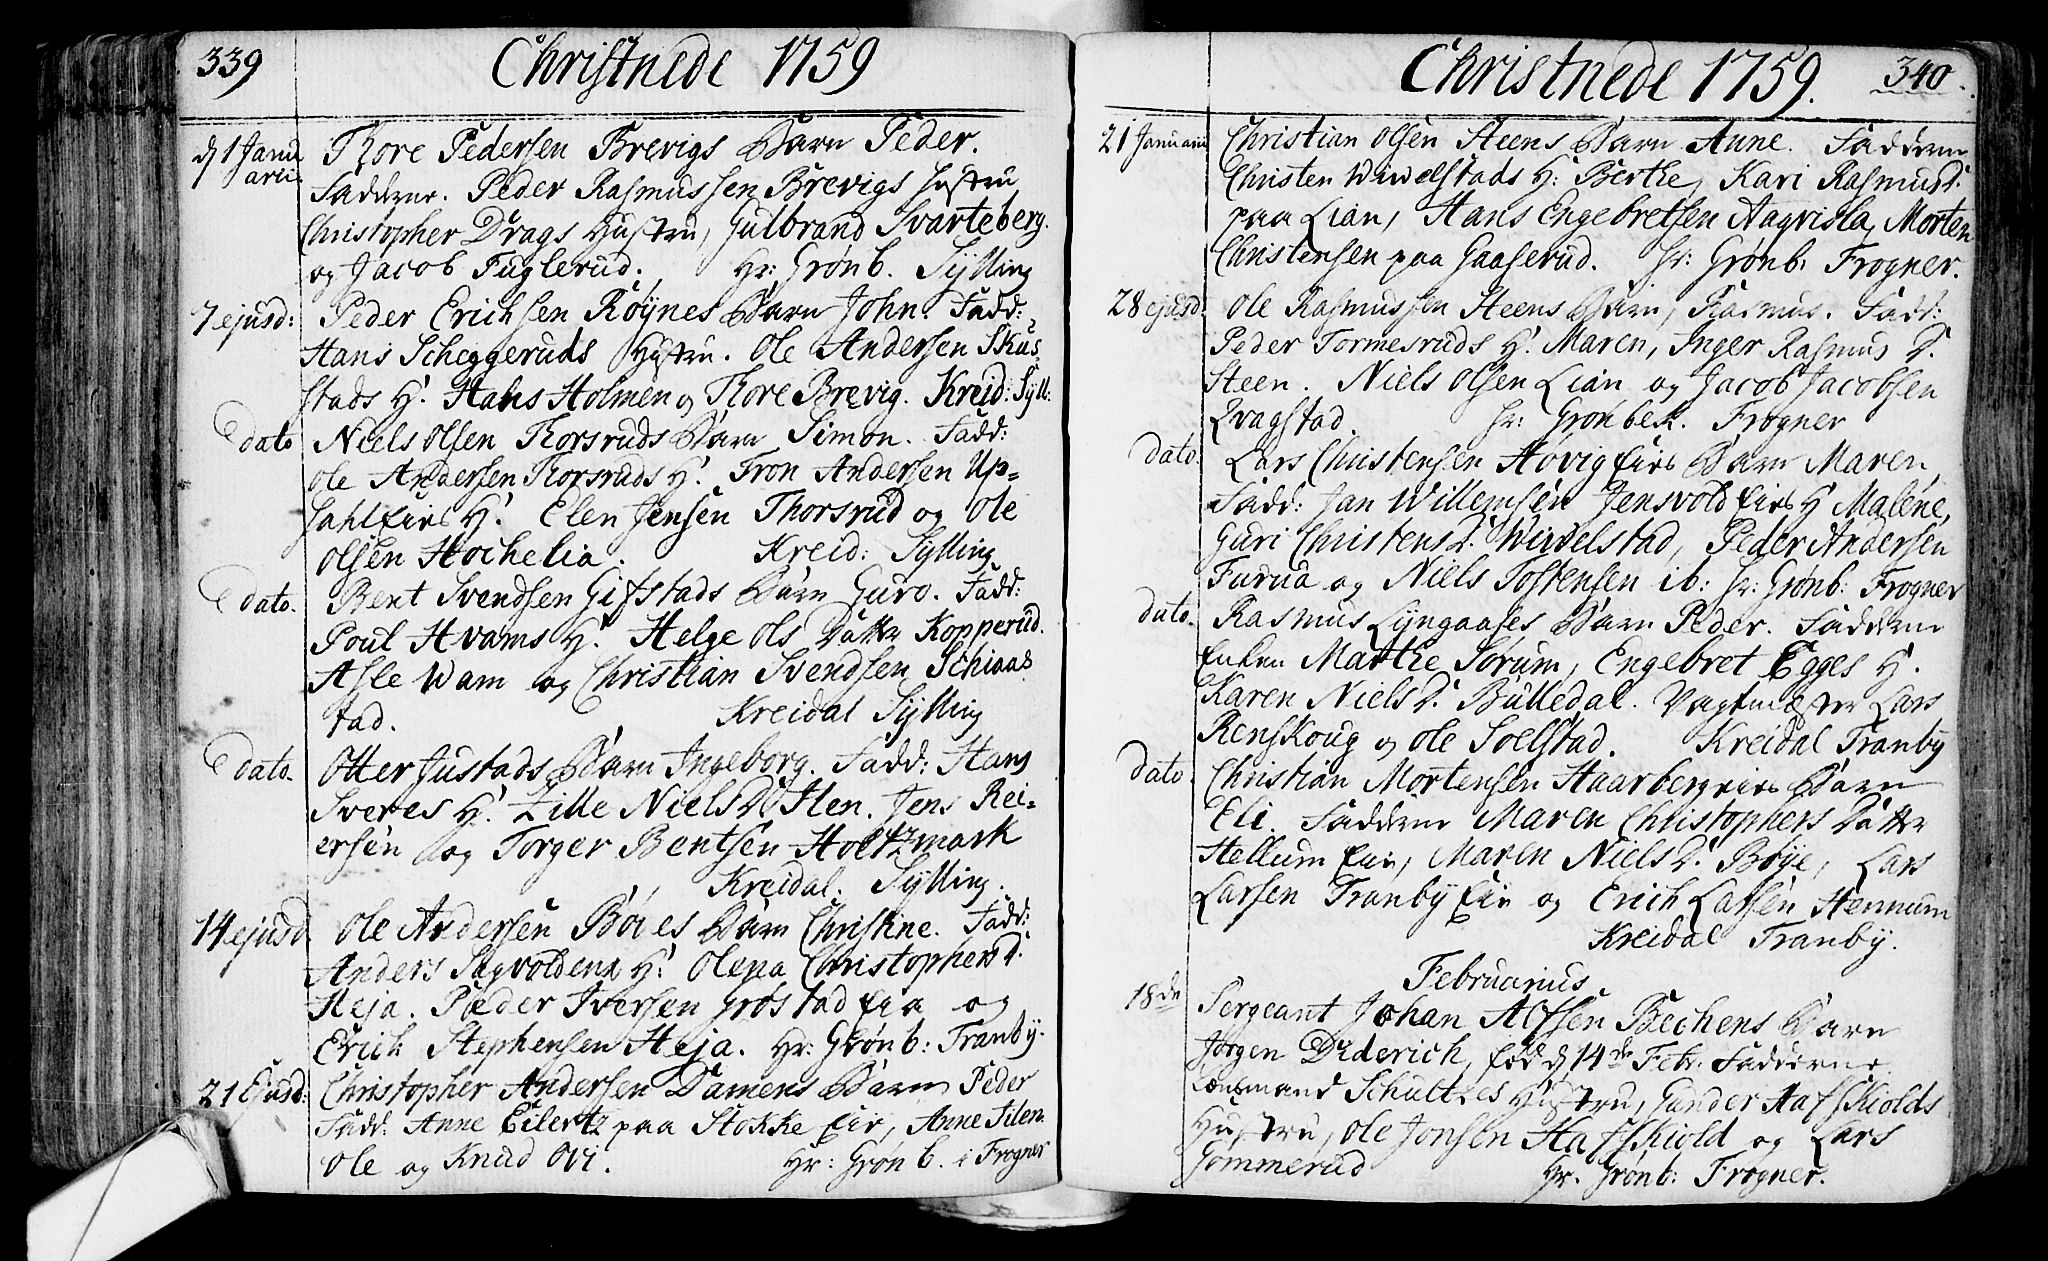 339
Christnede 1759
d 1 Janu
arii.
Thore Pedersen Brevigs Barn Peder.
Fadderne. Peder Rasmussen Brevigs Hustru
Christopher Drags Hustru, Gulbrand Svarteberg.
og Jacob Fuglerud. Hr: Grønb. Sylling
7 ejusd:
Peder Erichsen Röynes Barn John. Fadd:
Hans Scheggeruds Hustru. Ole Andersen Skus
stads H. Hans Holmen og Thore Brevig. Kreid: Syll:
dato
Niels Olsen Thorsruds Barn Simon. Fadd:
Ole Andersen Thorsruds H. Tron Andersen Up=
sahleies H. Elen Jensen Thorsrud og Ole
Olsen Hochelia. Kreid: Sylling
dato.
Bent Svendsen Gifstads Barn Guro. Fadd:
Poul Hvams H. Helge Ols Datter Kopperud.
Asle Wam og Christian Svendsen Schiaas
tad. Kreidal Sylling
dato.
Otter Justads Barn Ingeborg. Fadd: Hans
Sveres H. Zille Niels D. Hen. Jens Rei=
ersen og Torger Bentsen Holtzmark
Kreidal. Sylling.
14 ejusd
Ole Andersen Böies Barn Christine. Fadd:
Anders Sagvoldens H. Olena Christophers D.
Heja. Peder Iversen Grøstad Eia og
Erich Stephensen Heja. Hr: Grønb: Tranby.
21 Ejusd:
Christopher Andersen Damens Barn Peder
Fadd: Anne Eilertz paa Stokke Eie, Anne Silen.
Ole og Knud Ovi. Hr: Grønb. i Frogner
Christnede 1759.
340.
21 Januarii
Christian Olsen Steens Barn Anne. Fadderne
Christen Wiwelstads H: Berthe, Kari Rasmus D.
paa Lian, Hans Engebretsen Aaqvisla, Morten
Christensen paa Gaaserud. Hr: Grønb: Frogner.
28 ejusd.
Ole Rasmussen Steens Barn, Rasmus. Fadd:
Peder Tormesruds H. Maren, Inger Rasmus D.
Steen. Niels Olsen Lian og Jacob Jacobsen
Qvagstad. Hr: Grønbek. Frogner
dato.
Lars Christensen Høvigeies Barn Maren,
Fadd: Jan Willemsen Jensvoldeies H. Malene,
Guri Christens D. Wivelstad, Peder Andersen
Furua og Niels Tostensen ib: Hr: Grønb: Frogner
dato.
Rasmus Lyngaases Barn Peder. Fadderne
Enken Marthe Sorum, Engebret Egges H.
Karen Niels D. Bulledal. Vagtmæster Lars
Renskoug og Ole Soelstad. Kreidal Tranby
dato
Christian Mortensen Haarbergeies Barn
Eli. Fadderne Maren Christophers Datter
Hellum Eie, Maren Niels D. Böye, Lars
Larsen Tranby Eie og Erich Larsen Hennum
Kreidal Tranby.
Februarius
18de
Sergeant Johan Alfsen Bechens Barn
Jørgen Diderich, Fød d 14de Febr. Fadderne.
Lensmand Schultzes Hustru, Gunder Hafskiolds
Hustru, Ole Jonsen Hafskiold og Lars
Gommerud Hr. Grønb: Frogner.